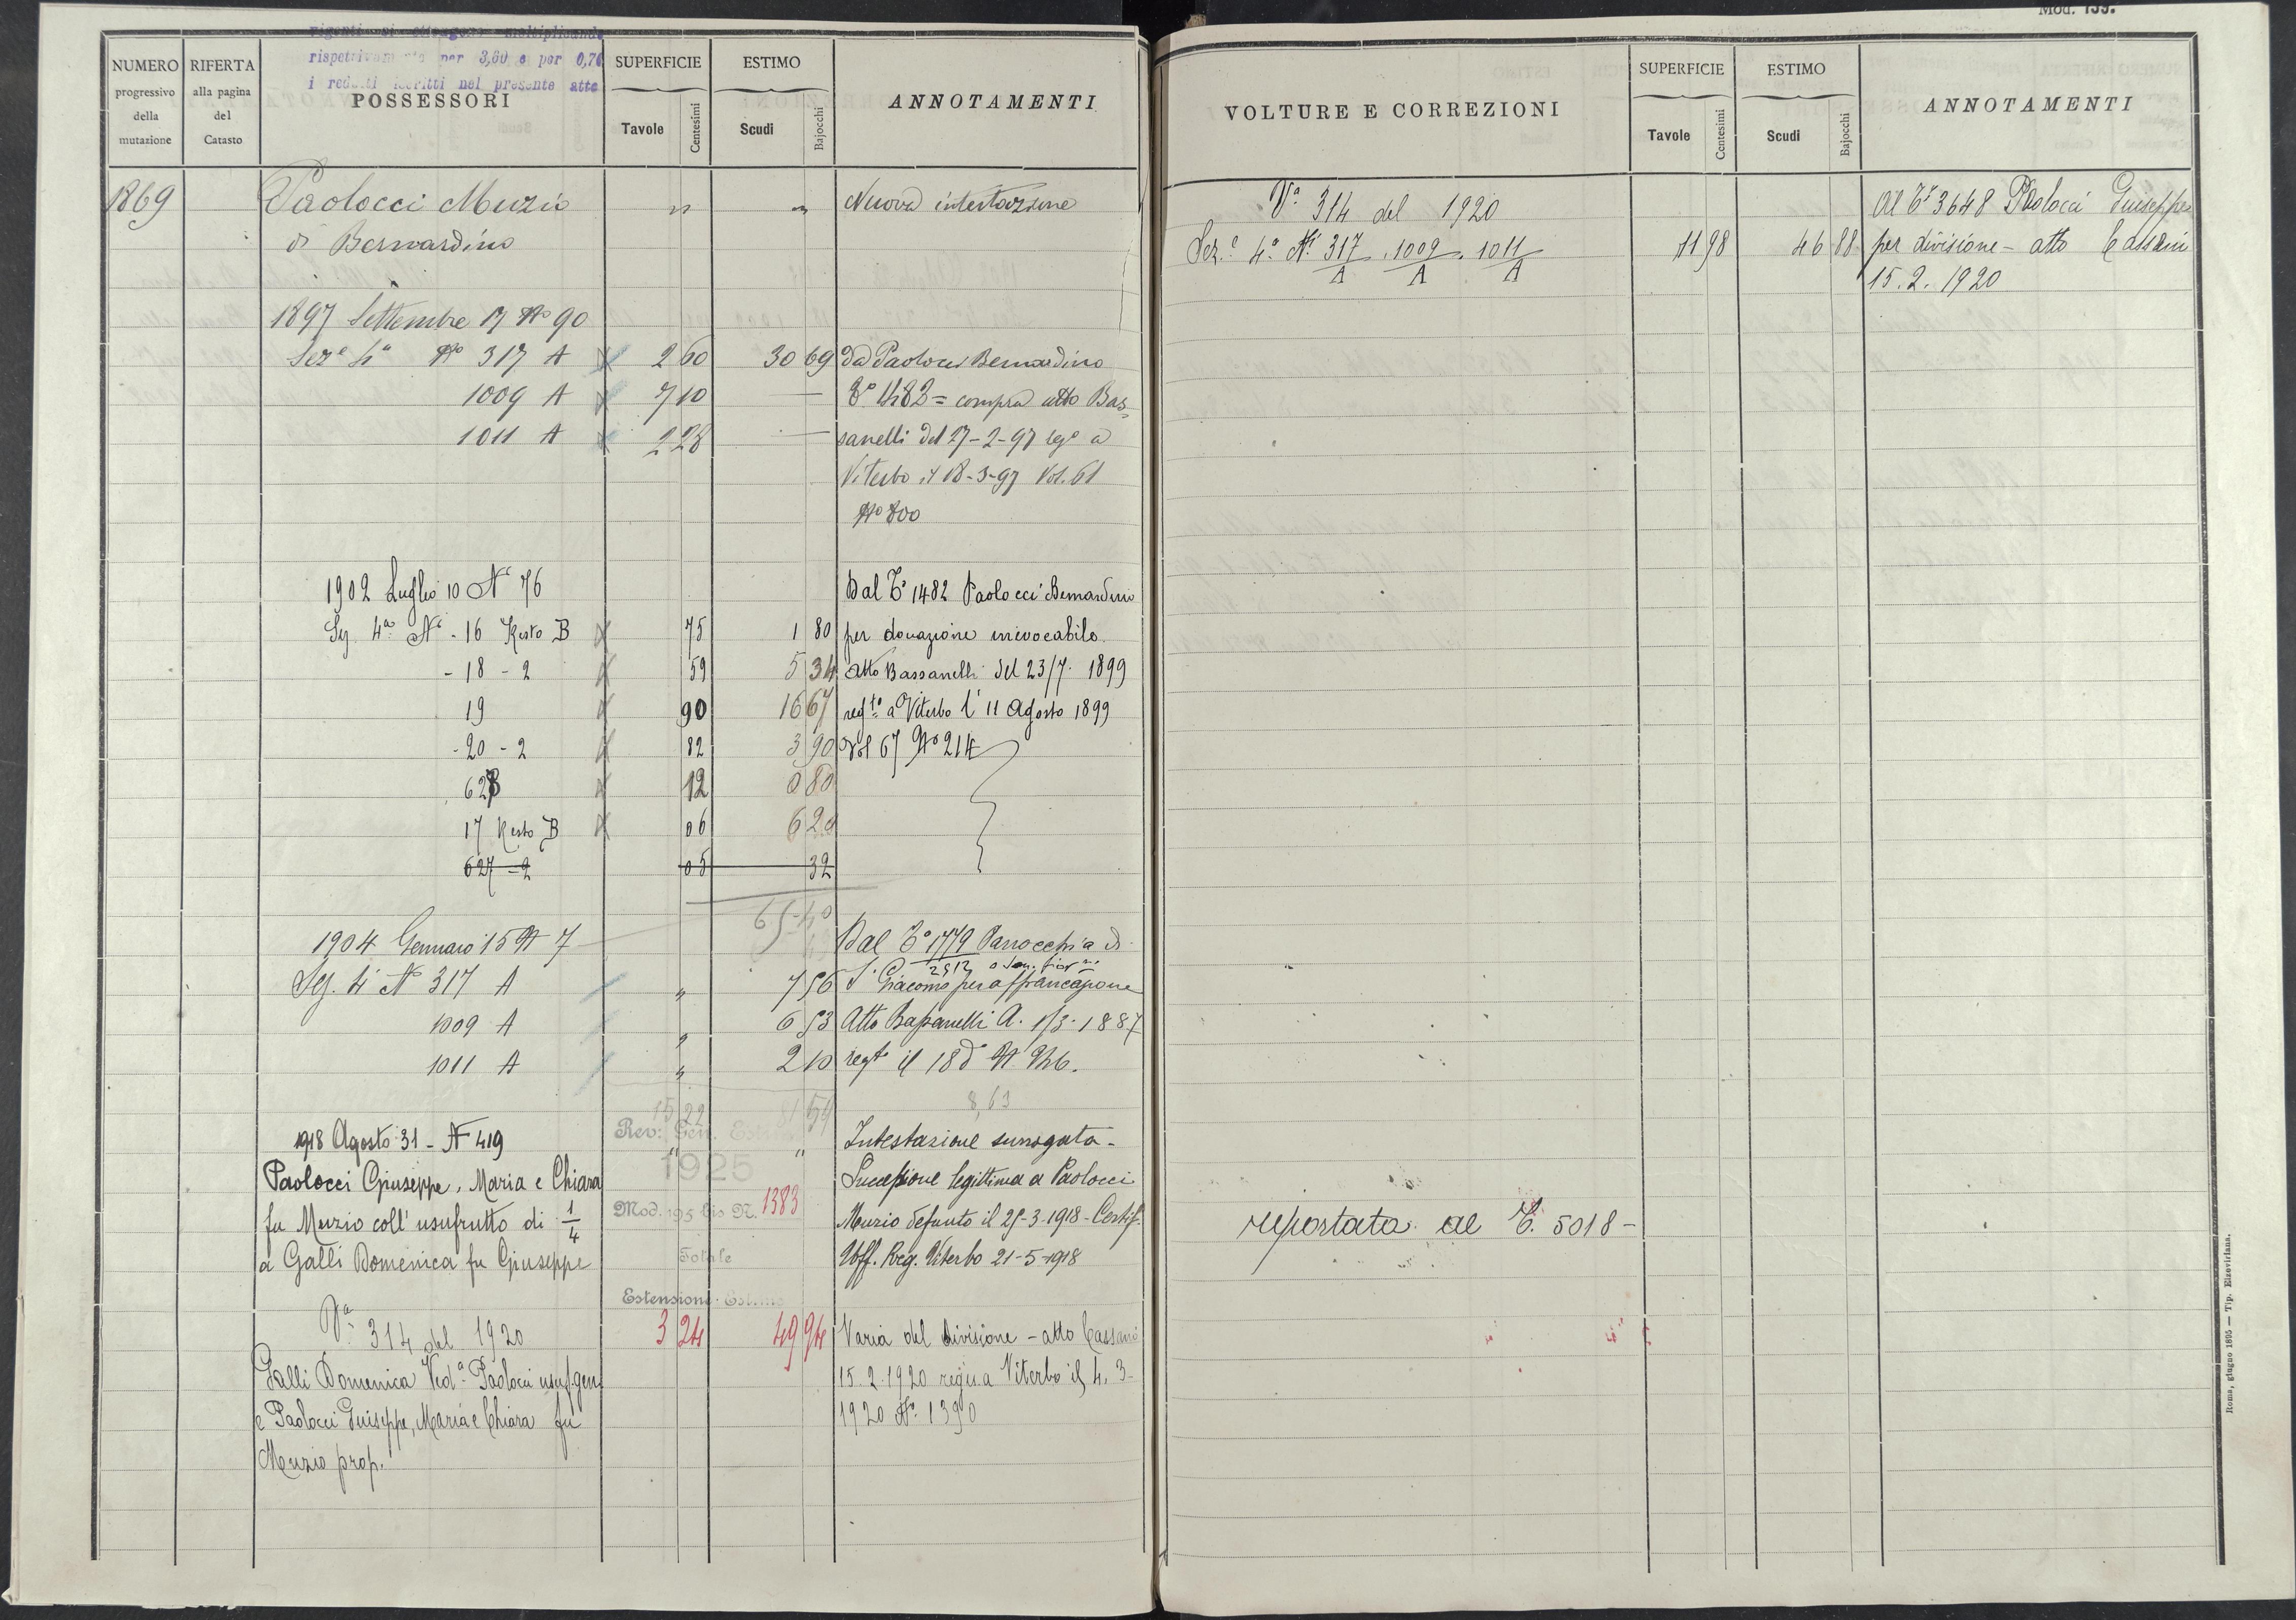 Mod. 199.
rigenti si ottengono moltiplicando
rispettivamente per 3,80 e per 0,76
i redditi iscritti nel presente atto
NUMERO progressivo della mutazione
RIFERTA alla pagina del Catasto
POSSESSORI
SUPERFICIE
Tavole Centesimi
ESTIMO
Scudi Bajocchi
ANNOTAMENTI
1869 Paolocci Muzio " " Nuova intestazione
di Bernardino
1897 Settembre 17 No 90
Seze 4a No 317 A 2 60 30 69 Da Paolocci Bernardino
1009 A 7 10 — To 1482 = compra atto Bas=
1011 A 2 28 — sanelli del 27-2-97 rego a
Viterbo il 18-3-97 Vol. 61
No 800
1902 Luglio 10 No 76 Dal To 1482 Paolocci Bernardino
Sez. 4a Ni - 16 Resto B 75 1 80 per donazione irrevocabile.
- 18 - 2 59 5 34 atto Bassanelli del 23/7. 1899
19 90 16 67 regto a Viterbo l' 11 Agosto 1899
- 20 - 2 82 3 90 Vol 67 No 214
627B 12 0 80
17 Resto B 06 6 20
627 - 2 05 32
65-40
1904 Gennaio 15 N 7 Dal To 1779 Parrocchia di
2512
Sez. 4a No 317 A " 7 56 S. Giacomo per affrancazione
1009 A " 6 53 Atto Bassanelli A. 1/3. 1887
1011 A " 2 10 regto il 18 do N.
15 22 81 59 8,63
Rev: Gen. Estimi
1918 Agosto 31 - N 419 " " Intestazione surrogata -
1925
Paolocci Giuseppe, Maria e Chiara Successione legittima a Paolocci
fu Muzio coll' usufrutto di 1/4 Mod. 195 bis N. 1383 Muzio defunto il 25-3-1918 - Certif.
a Galli Domenica fu Giuseppe Totale Uff. Reg. Viterbo 21-5-1918
Estensione - Estimo
Va 314 del 1920 3 24 49 94 Varia del divisione - atto Cassani
Galli Domenica Veda Paolocci usuf. gen. 15. 2. 1920 reg. a Viterbo il 4. 3-
e Paolocci Guiseppe, Maria e Chiara fu 1920 No. 1390
Muzio prop.
VOLTURE E CORREZIONI
SUPERFICIE
Tavole Centesimi
ESTIMO
Scudi Bajocchi
ANNOTAMENTI
Va 314 del 1920 Al To 3648 Paolocci Guiseppe
Seze 4a Ni 317/A . 1009/A . 1011/A 11 98 46 88 per divisione - atto Cassani
15. 2. 1920
riportata al T. 5018 -
Roma, giugno 1895 — Tip. Elzeviriana.